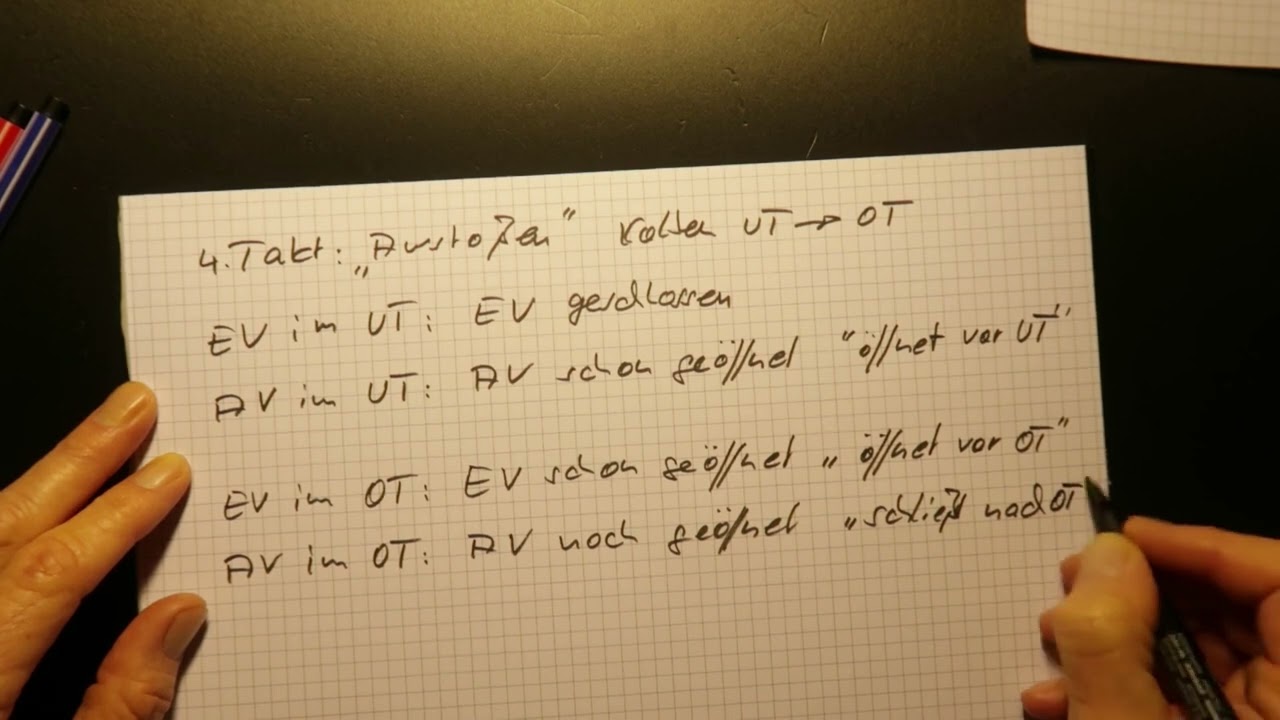 4. Takt: „Ausstoßen“ Kolben UT → OT
EV im UT: EV geschlossen
AV im UT: AV schon geöffnet "öffnet vor UT"
EV im OT: EV schon geöffnet „öffnet vor OT"
AV im OT: AV noch geöffnet „schließt nach OT